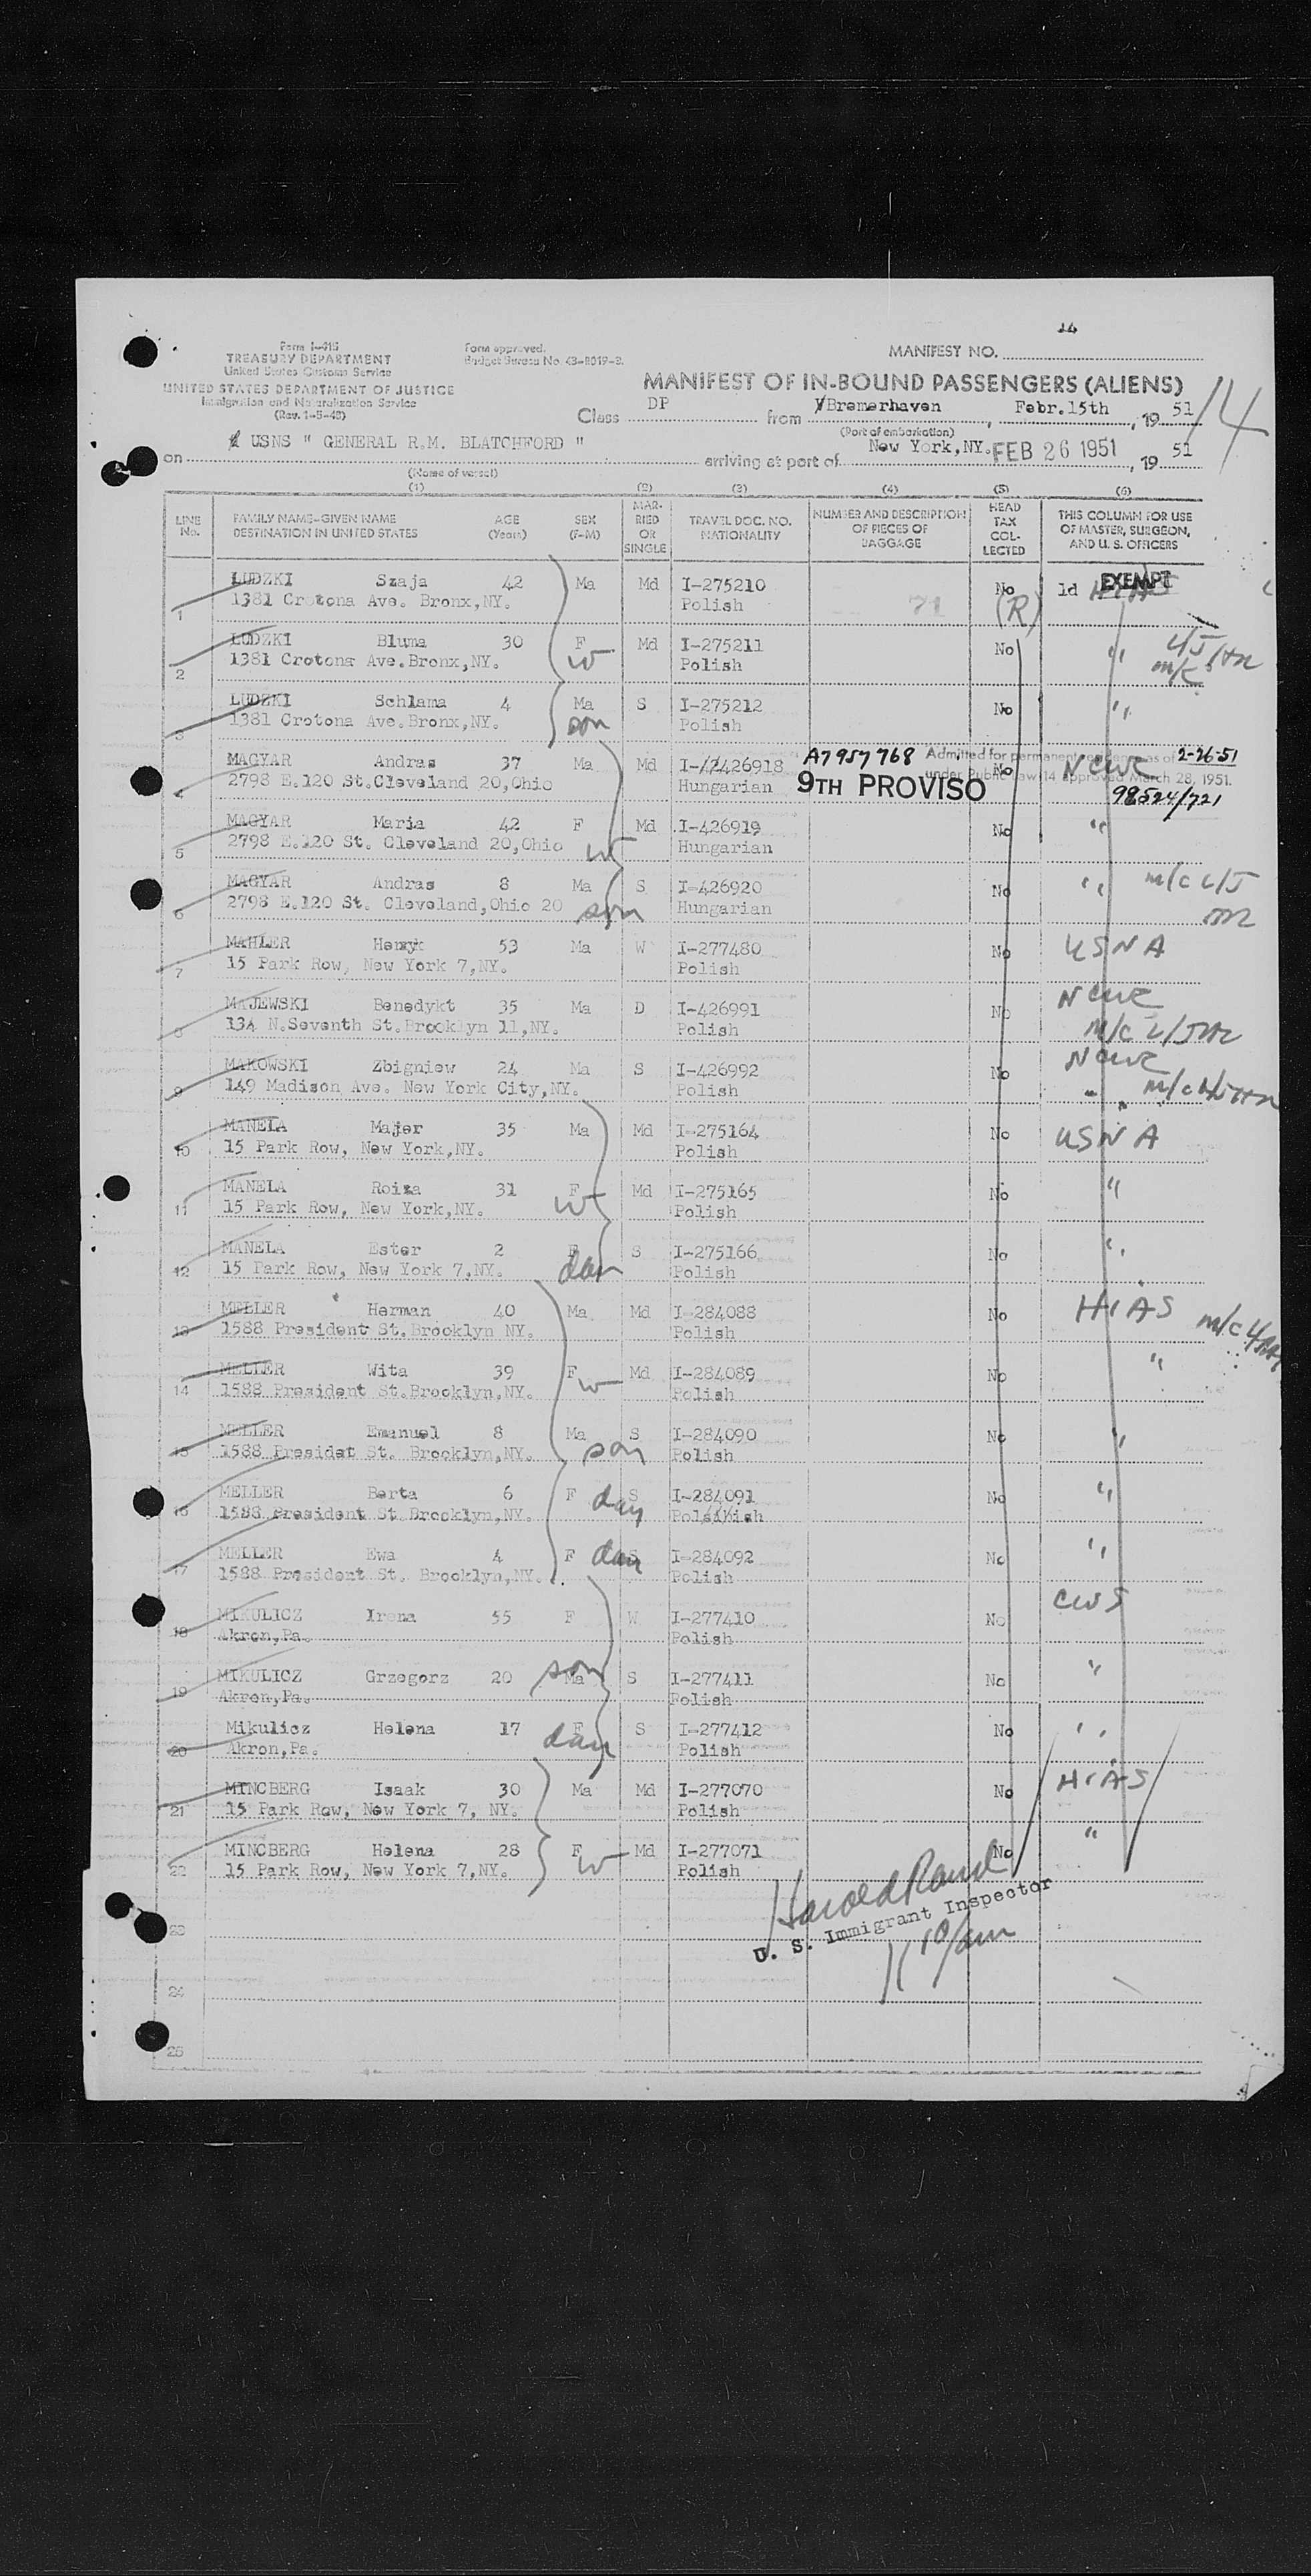 14
Form I-415
TREASURY DEPARTMENT
United States Customs Service
UNITED STATES DEPARTMENT OF JUSTICE
Immigration and Naturalization Service
(Rev. 1-5-48)
Form approved.
Budget Bureau No. 43-R019-2.
MANIFEST NO.
MANIFEST OF IN-BOUND PASSENGERS (ALIENS)
14
Class DP from Bremerhaven, Febr.15th, 1951
(Port of embarkation)
on USNS " GENERAL R.M. BLATCHFORD " arriving at port of New York,NY. FEB 26 1951, 1951
(Name of vessel)
(1) (2) (3) (4) (5) (6)
LINE No. FAMILY NAME-GIVEN NAME DESTINATION IN UNITED STATES AGE (Years) SEX (F-M) MARRIED OR SINGLE TRAVEL DOC. NO. NATIONALITY NUMBER AND DESCRIPTION OF PIECES OF BAGGAGE HEAD TAX COLLECTED THIS COLUMN FOR USE OF MASTER, SURGEON, AND U. S. OFFICERS
1 LUDZKI Szaja 42 Ma Md I-275210 71 No 1d EXEMPT
1381 Crotona Ave. Bronx,NY. Polish (R)
2 LUDZKI Bluma 30 F Md I-275211 No "
1381 Crotona Ave.Bronx,NY. W Polish m/c
3 LUDZKI Schlama 4 Ma S I-275212 No "
1381 Crotona Ave.Bronx,NY. son Polish
4 MAGYAR Andras 37 Ma Md I-426918 A7957768 Admitted for permanent residence as of 2-26-51 No NCWC
2798 E.120 St.Cleveland 20,Ohio Hungarian 9TH PROVISO under Public Law 14 approved March 28, 1951.
98524/721
5 MAGYAR Maria 42 F Md I-426919 No "
2798 E.120 St. Cleveland 20,Ohio W Hungarian
6 MAGYAR Andras 8 Ma S I-426920 No " m/c
2798 E.120 St. Cleveland,Ohio 20 son Hungarian
7 MAHLER Henyk 53 Ma W I-277480 No USNA
15 Park Row, New York 7,NY. Polish
8 MAJEWSKI Benedykt 35 Ma D I-426991 No NCWC
134 N.Seventh St.Brooklyn 11,NY. Polish m/c
9 MAKOWSKI Zbigniew 24 Ma S I-426992 No NCWC
149 Madison Ave. New York City,NY. Polish m/c
10 MANELA Majer 35 Ma Md I-275164 No USNA
15 Park Row, New York,NY. Polish
11 MANELA Roiza 31 F Md I-275165 No "
15 Park Row, New York,NY. W Polish
12 MANELA Ester 2 F S I-275166 No "
15 Park Row, New York 7,NY. dau Polish
13 MELLER Herman 40 Ma Md I-284088 No HIAS m/c
1588 President St.Brooklyn NY. Polish
14 MELLER Wita 39 F W Md I-284089 No "
1588 President St.Brooklyn,NY. Polish
15 MELLER Emanuel 8 Ma S I-284090 No "
1588 Presidet St. Brooklyn,NY. son Polish
16 MELLER Berta 6 F dau S I-284091 No "
1588 President St.Brooklyn,NY.
17 MELLER Ewa 4 F dau S I-284092 No "
1588 President St. Brooklyn,NY. Polish
18 MIKULICZ Irena 55 F W I-277410 No CWS
Akron,Pa. Polish
19 MIKULICZ Grzegorz 20 son Ma S I-277411 No "
Akron,Pa. Polish
20 Mikulicz Helena 17 F S I-277412 No "
Akron,Pa. dau Polish
21 MINCBERG Isaak 30 Ma Md I-277070 No HIAS
15 Park Row, New York 7, NY. Polish
22 MINCBERG Helena 28 F W Md I-277071 No "
15 Park Row, New York 7,NY. Polish
23
U. S. Immigrant Inspector
24
25